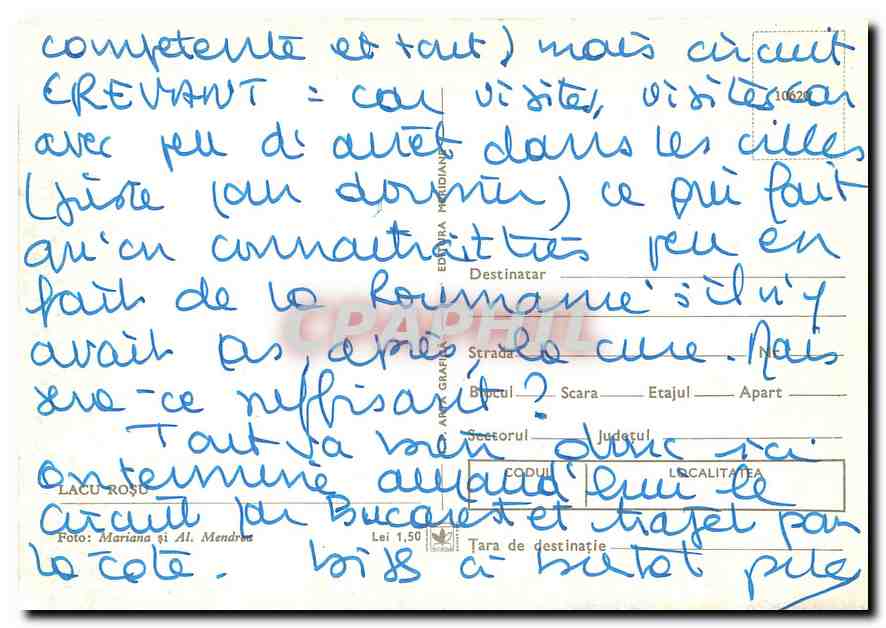 compétente et tout) mais circuit
CREVANT = car visites, visites car
10620
avec peu d'arrêt dans les villes
(juste pour dormir) ce qui fait
qu'on connaîtrait très peu en
Destinatar
fait de la Roumanie s'il n'y
CPAPHIL
avait pas, après, la cure. Mais
Strada Nr.
sera-ce suffisant?
Blocul Scara Etajul Apart
Tout va bien donc ici
Sectorul Județul
on termine aujourd'hui le
CODUL LOCALITATEA
LACU ROȘU
circuit par Bucarest et trajet pour
Foto: Mariana și Al. Mendrea Lei 1,50
Țara de destinație
la côte. bises à bientôt
ARTA GRAFICĂ EDITURA MERIDIANE